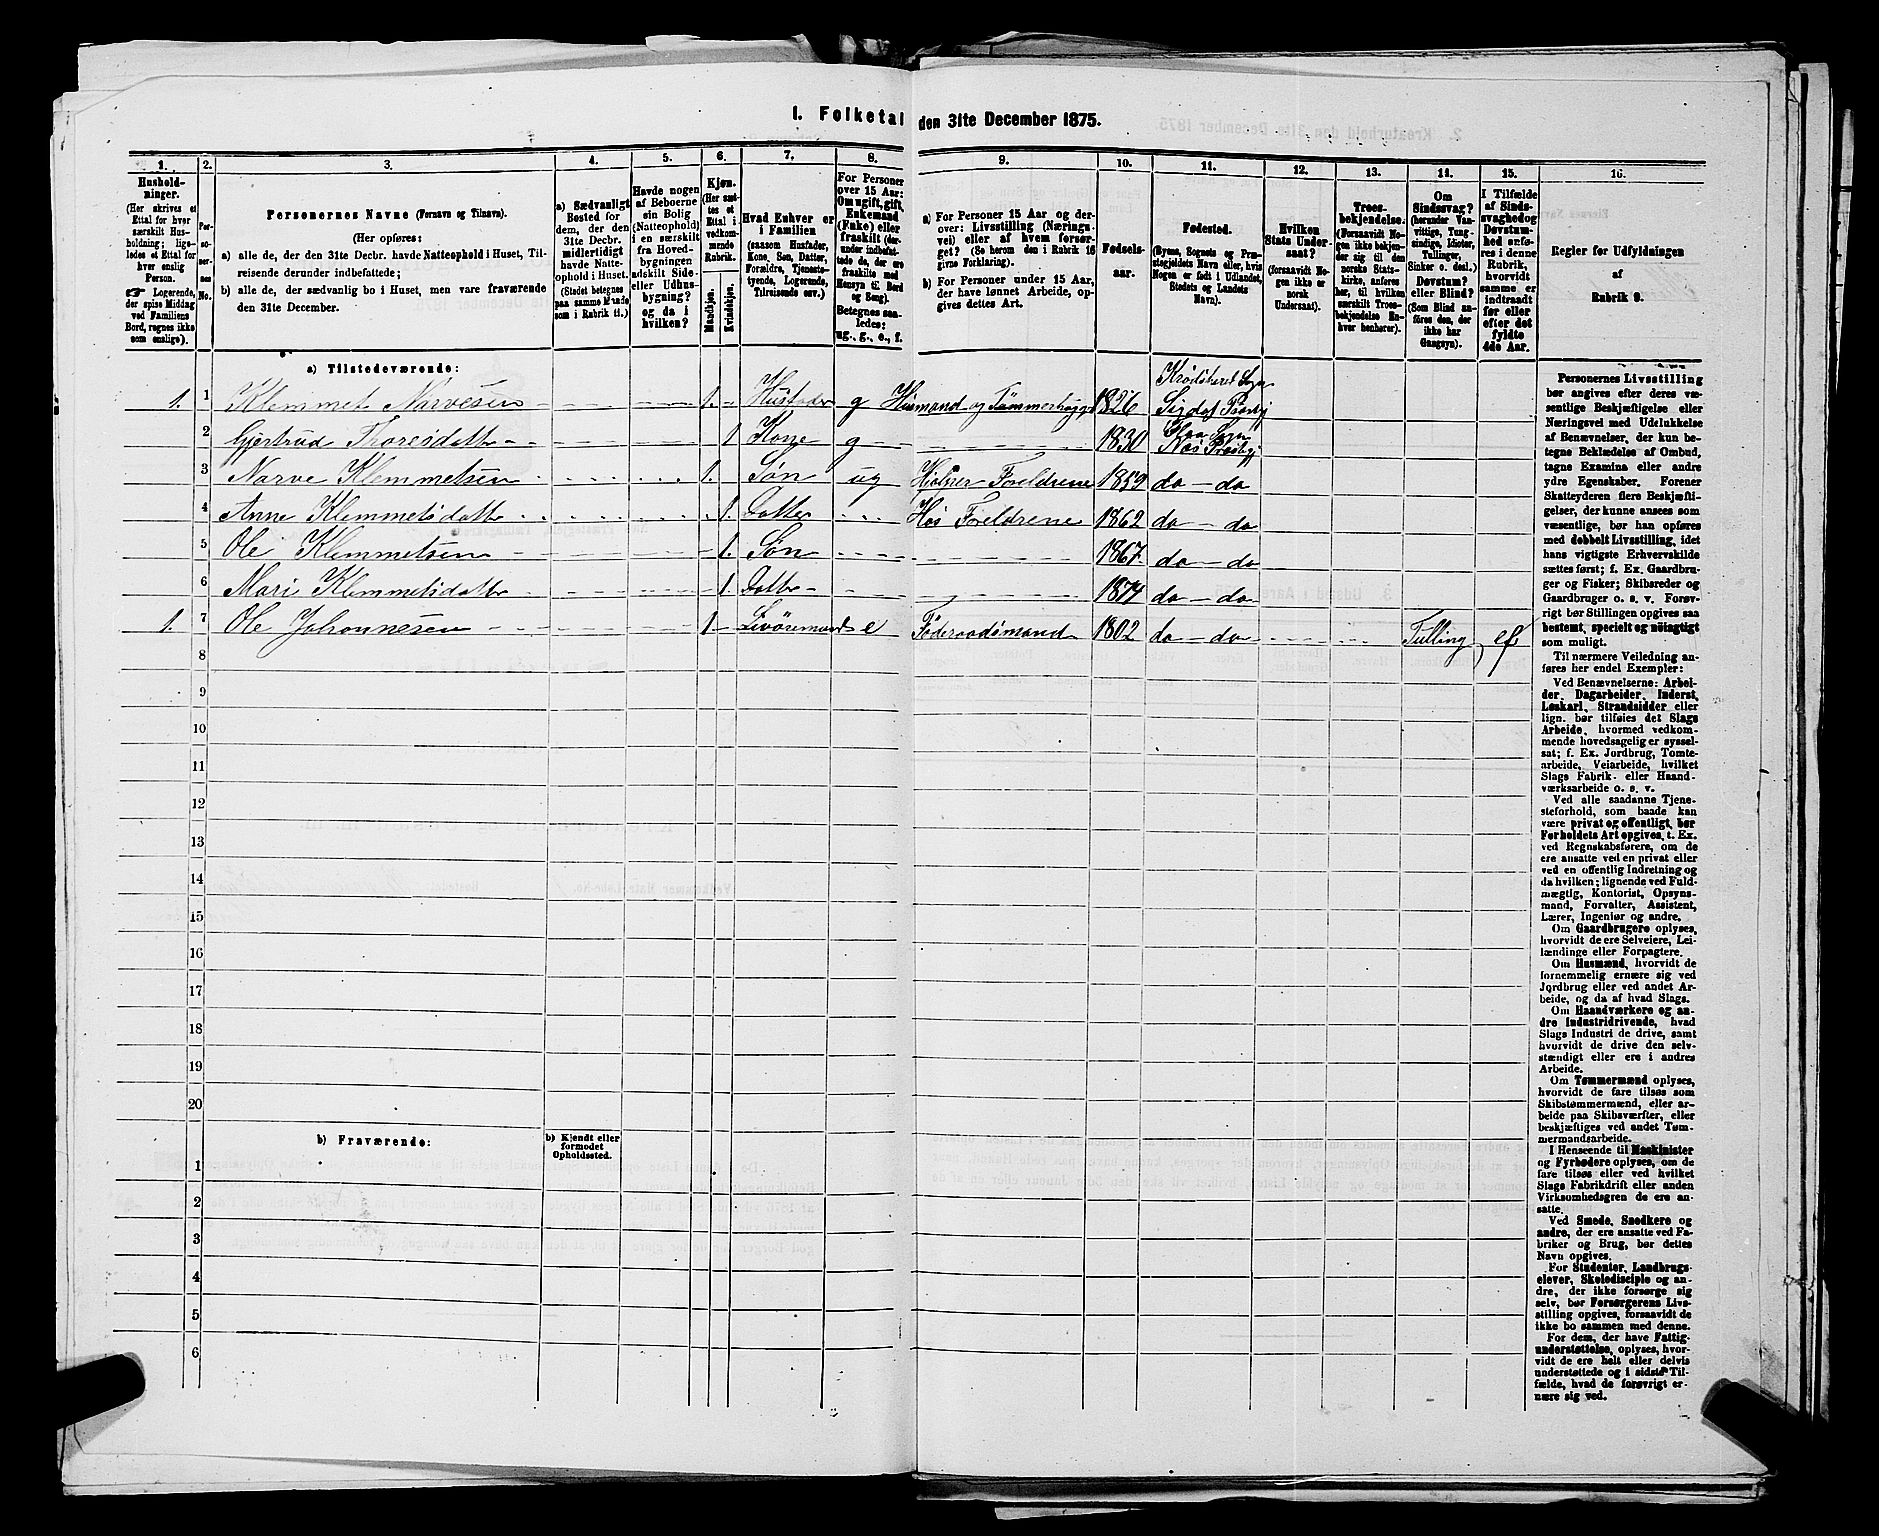 1. Folketal den 31te December 1875.
1. 2. 3. 4. 5. 6. 7. 8. 9. 10. 11. 12. 13. 14. 15. 16.
Husholdninger.
(Her skrives et
Ettal for hver
særskilt Husholdning;
ligeledes et Ettal for
hver enslig
Person.
☞ Logerende,
der spise Middag
ved Familiens
Bord, regnes ikke
som enslige).
Personernes No.
Personernes Navne (Fornavn og Tilnavn).
(Her opføres:
a) alle de, der den 31te Decbr. havde Natteophold i Huset, Tilreisende derunder indbefattede;
b) alle de, der sædvanlig bo i Huset, men vare fraværende
den 31te December.
a) Sædvanligt
Bosted for
dem, der den
31te Decbr.
midlertidigt
havde Natteophold i Huset.
(Stedet betegnes
paa samme Maade
som i Rubrik 11.)
Havde nogen
af Beboerne
sin Bolig
(Natteophold)
i en særskilt
fra Hovedbygningen
adskilt Side-
eller Udhusbygning?
og da i
hvilken?
Kjøn.
(Her sættes et
Ettal i
vedkommende
Rubrik.
Mandkjøn.
Kvindekjøn.
Hvad Enhver er
i Familien
(saasom Husfader,
Kone, Søn, Datter,
Forældre, Tjenestetyende, Logerende,
Tilreisende osv.)
For Personer
over 15 Aar:
Om ugift, gift,
Enkemand
(Enke) eller
fraskilt (derunder
de, der ere
fraskilte med
Hensyn til Bord
og Seng).
Betegnes saaledes:
ug., g., e., f.
a) For Personer 15 Aar og derover: Livsstilling (Næringsvei) eller af hvem forsørget? (Se herom den i Rubrik 16
givne Forklaring).
b) For Personer under 15 Aar,
der have lønnet Arbeide, opgives dettes Art.
Fødselsaar.
Fødested.
(Byens, Sognets og Præstegjeldets Navn eller, hvis
Nogen er født i Udlandet,
Stedets og Landets
Navn).
Hvilken
Stats Undersaat?
(forsaavidt Nogen ikke er
norsk
Undersaat).
Troesbekjendelse.
(Forsaavidt Nogen ikke bekjender sig til den
norske Statskirke, anføres
her, til hvilken
særskilt Troesbekjendelse Enhver henhører).
Om
Sindssvag?
(herunder Vanvittige, Tungsindige, Idioter,
Tullinger,
Sinker o. desl.)
Døvstum?
eller Blind?
(Som Blind anføres den, der
ikke har
Gangsyn).
I Tilfælde
af Sindssvaghed og
Døvstumhed anføres i denne
Rubrik,
hvorvidt
samme er
indtraadt
før eller
efter det
fyldte
4de Aar.
Regler for Udfyldningen
af
Rubrik 9.
a) Tilstedeværende:
1. 1 Klemmet Narvesen 1. Husfader g Husmand og Tømmerhugger 1826 Krødsherred Sogn Sigdal Præstgj
2 Gjertrud Thoresdatter 1 Kone g 1830 Flaa Sogn Næs Præstgj
3 Narve Klemmetsen 1. Søn ug Hjælper Foreldrene 1859 do do
4 Anne Klemmetsdatter 1. Datter Hos Foreldrene 1862 do do
5 Ole Klemmetsen 1. Søn 1867. do do
6 Mari Klemmetsdatter 1 Datter 1874 do do
1. 7 Ole Johannesen 1 e Føderaadsmand 1802 do do Tulling ef.
8
9
10
11
12
13
14
15
16
17
18
19
20
b) Fraværende:
b) Kjendt eller
formodet
Opholdssted.
1
2
3
4
5
6
Personernes Livsstilling
bør angives efter deres væsentlige Beskjæftigelse eller
Næringsvei med Udelukkelse
af Benævnelser, der kun betegne Beklædelse af Ombud,
tagne Examina eller andre
ydre Egenskaber. Forener
Skatteyderen flere Beskjæftigelser, der kunne ansees som
væsentlige, bør han opføres
med dobbelt Livsstilling, idet
hans vigtigste Erhvervskilde
sættes først; f. Ex. Gaardbruger og Fisker; Skibsreder og
Gaardbruger o. s. v. Forøvrigt bør Stillingen opgives saa
bestemt, specielt og nøiagtigt
som muligt.
Til nærmere Veiledning anføres her endel Exempler:
Ved Benævnelserne: Arbeider, Dagarbeider, Inderst,
Løskarl, Strandsidder eller
lign. bør tilføies det Slags
Arbeide, hvormed vedkommende hovedsagelig er sysselsat; f. Ex. Jordbrug, Tomtearbeide, Veiarbeide, hvilket
Slags Fabrik- eller Haandværksarbeide o. s. v.
Ved alle saadanne Tjenesteforhold, som baade kan
være privat og offentligt, bør
Forholdets Art opgives, t. Ex.
ved Regnskabsførere, om de
ere ansatte ved en privat eller
ved en offentlig Indretning og
da hvilken; lignende ved Fuldmægtig, Kontorist, Opsynsmand, Forvalter, Assistent,
Lærer, Ingeniør og andre.
Om Gaardbrugere oplyses,
hvorvidt de ere Selveiere, Leilændinge eller Forpagtere.
Om Husmænd, hvorvidt de
fornemmelig ernære sig ved
Jordbrug eller ved andet Arbeide, og da af hvad Slags.
Om Haandværkere og andre Industridrivende, hvad
Slags Industri de drive, samt
hvorvidt de drive den selvstændigt eller ere i andres
Arbeide.
Om Tømmermænd oplyses,
hvorvidt de fare tilsøs som
Skibstømmermænd, eller arbeide paa Skibsværfter, eller
beskjæftiges ved andet Tømmermandsarbeide.
I Henseende til Maskinister
og Fyrbødere oplyses, om de
fare tilsøs eller ved hvilket
Slags Fabrikdrift eller anden
Virksomhedsgren de ere ansatte.
Ved Smede, Snedkere og
andre, der ere ansatte ved Fabriker og Brug, bør dettes
Navn opgives.
For Studenter, Landbrugselever, Skoledisciple og andre, der ikke forsørge sig
selv, bør Forsørgerens Livsstilling opgives, forsaavidt de
ikke bo sammen med denne.
For dem, der have Fattigunderstøttelse, oplyses, hvorvidt de ere helt eller delvis
understøttede og i sidste Tilfælde, hvad de forøvrigt ernære sig ved.